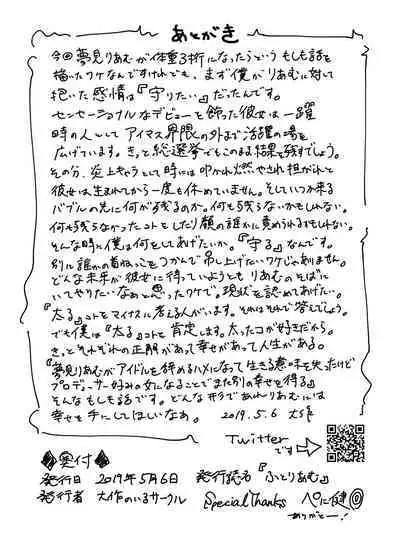 あとがき
今回夢見りあむが体重3桁になったらというもしも話を
描いたワケなんですけれども、まず僕がりあむに対して
抱いた感情は『守りたい』だったんです。
センセーショナルなデビューを飾った彼女は一躍
時の人としてアイマス界隈の外まで活躍の場を
広げています。きっと総選挙でもこのまま結果を残すでしょう。
その分、炎上キャラとして時には叩かれ燃やされ担がれと
彼女は生まれてから一度も休めていません。そしていつか来る
バブルの先に何が残るのか。何も残らないかもしれない。
何も残らなかったコトをしたり顔の誰かに責められるかもしれない。
そんな時に僕は何をしてあげたいか。『守る』なんです。
別に誰かの首根っこをつかんで吊し上げたいワケじゃありません。
どんな未来が彼女に待っていようとも りあむのそばに
いてやりたいなぁと思ったワケで。現状を認めてあげたい。
『太る』コトをマイナスに考える人がいます。それはそれで答えでしょう。
でも僕は『太る』コトを肯定します。太ったコが好きだから。
きっとそれぞれの正解があって幸せがあって人生がある。
『夢見りあむがアイドルを辞めるハメになって生きる意味を失ったけど
プロデューサー好みの女になることでまた別の幸せを得る』
そんなもしも話です。どんな形であれりあむには
幸せを手にしてほしいなぁ。 2019.5.6 大作
Twitter
です
◆奥付◆
発行日 2019年5月6日 発行誌名『ふとりあむ』
発行者 大作のいるサークル Special Thanks ぺに健
ありがとー!